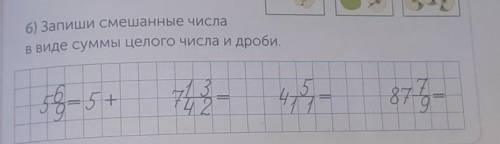 б) Запиши смешанные числа
в виде суммы целого числа и дроби.
5 6/9 = 5 +   7 13/42 =   4 5/11 =   87 7/9 =